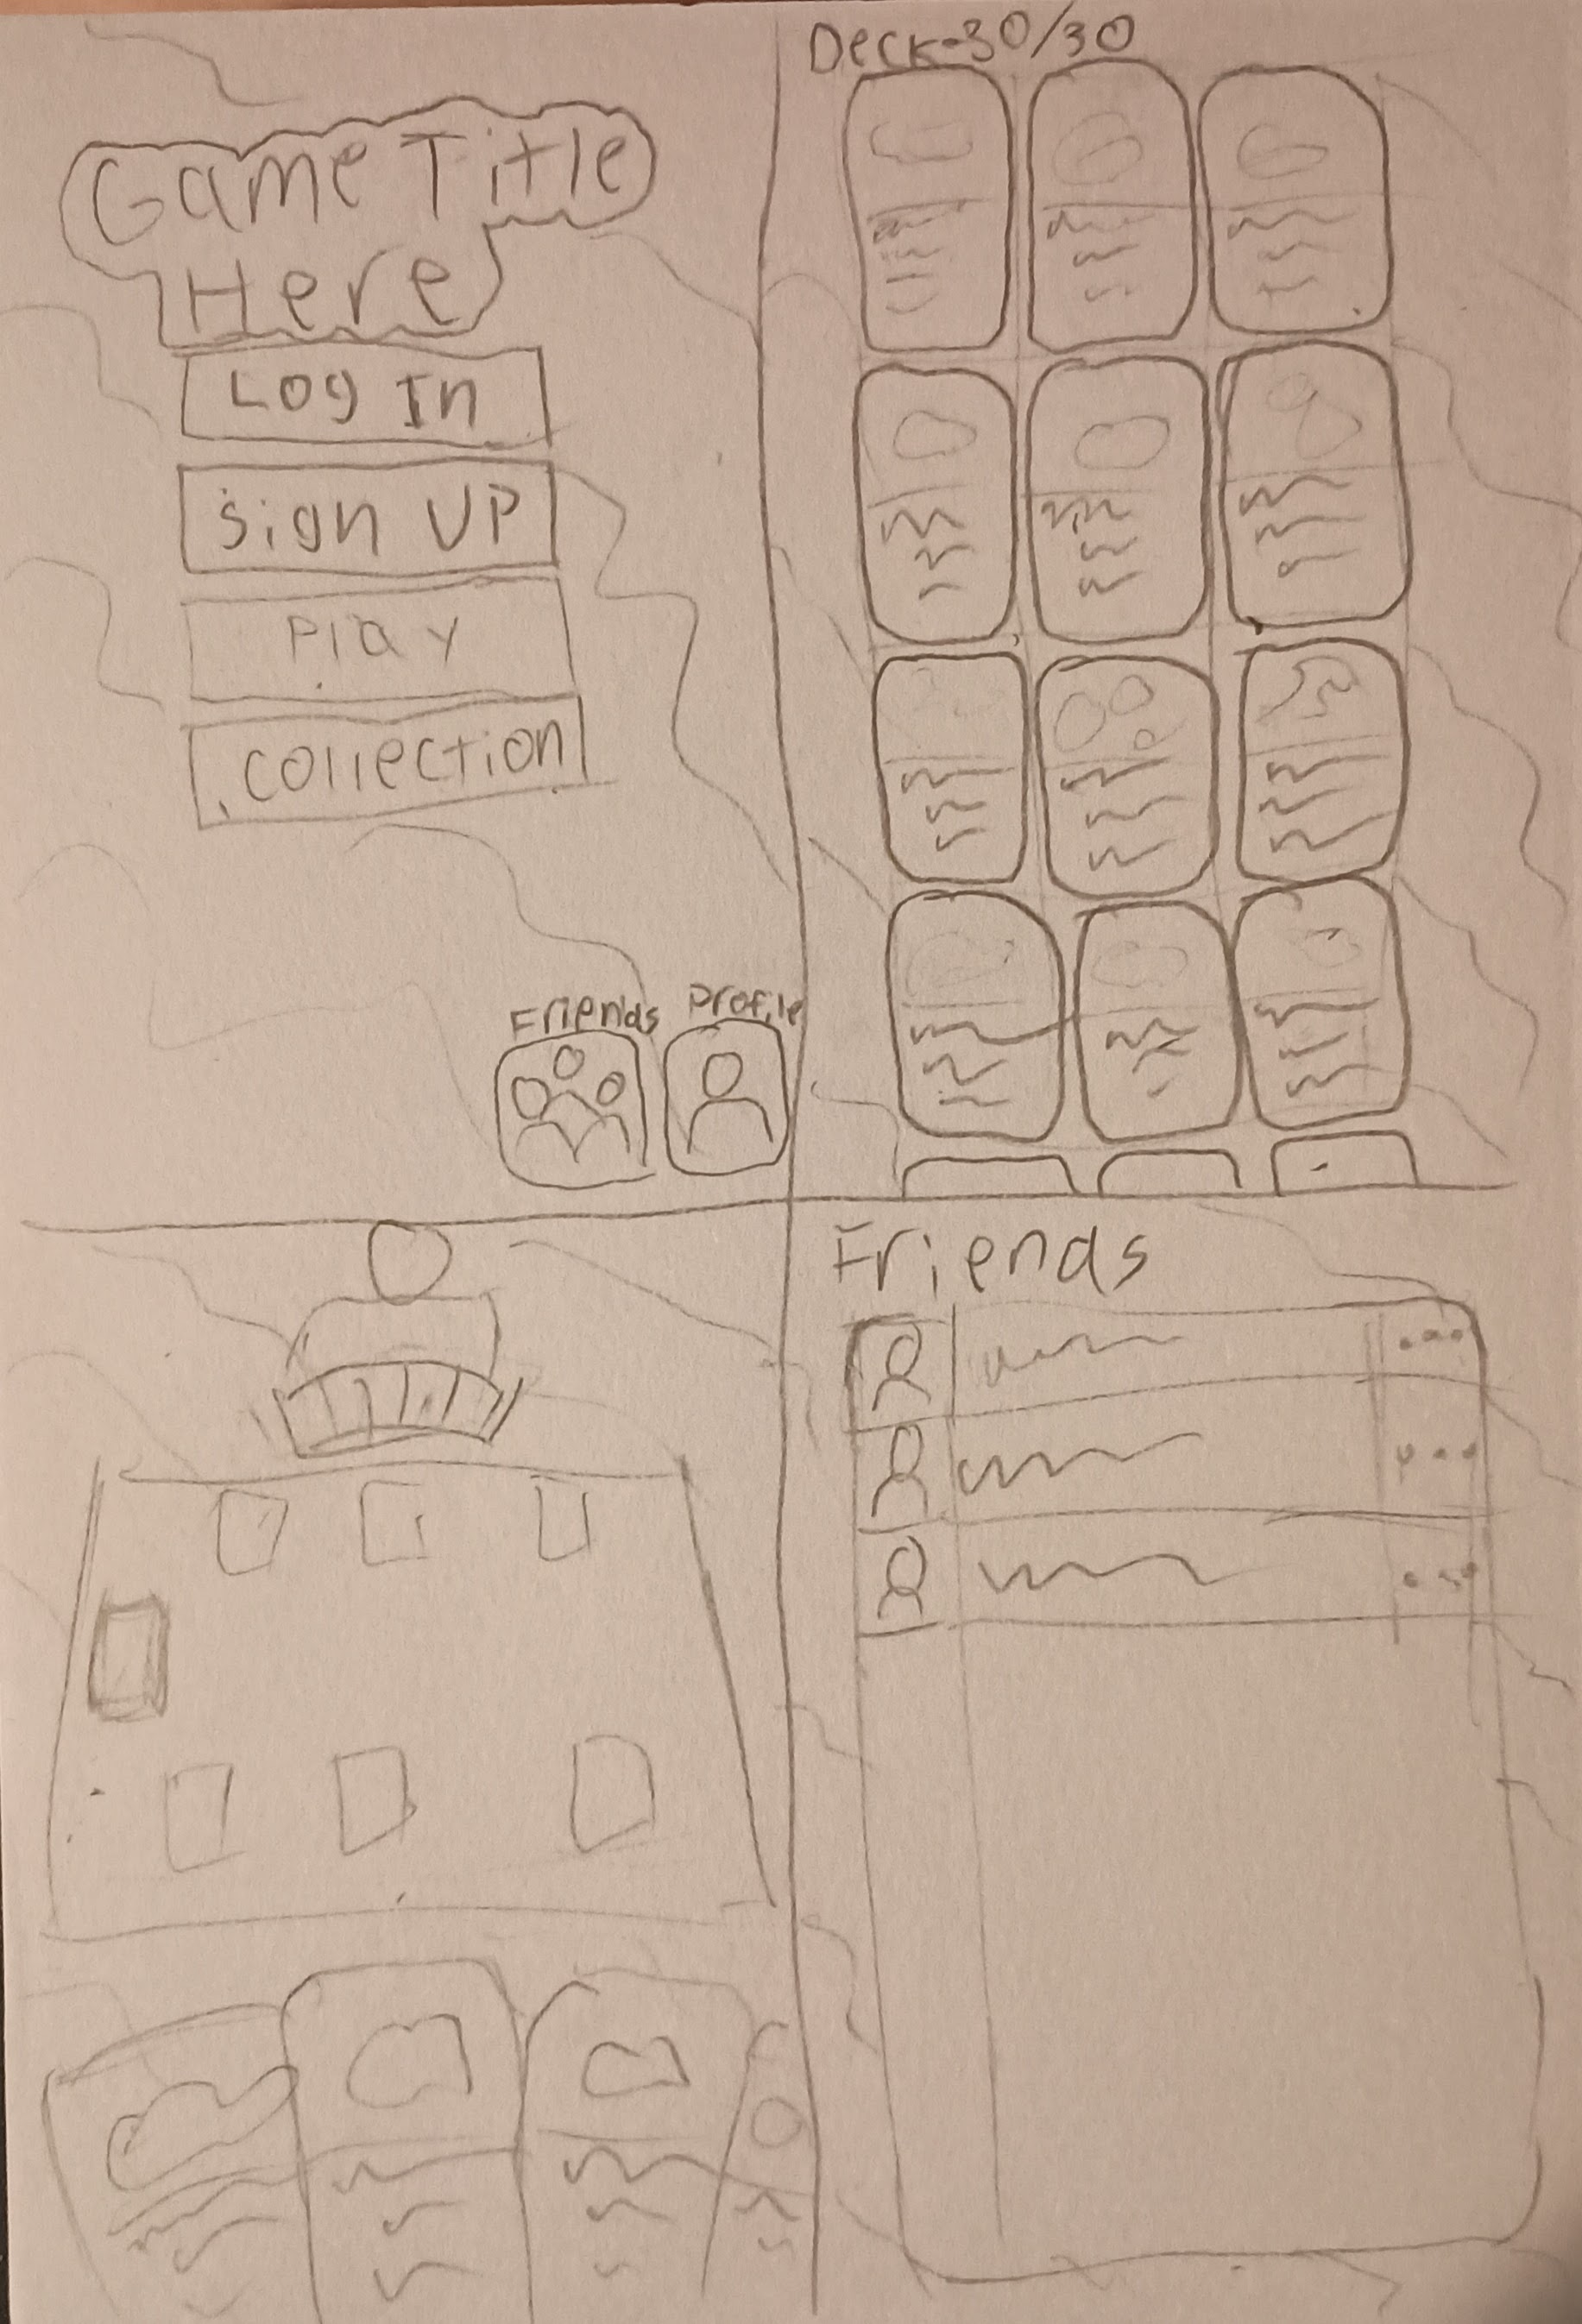 Game Title
Here
Log In
Sign UP
Play
Collection
Friends
Profile
Deck-30/30
Friends